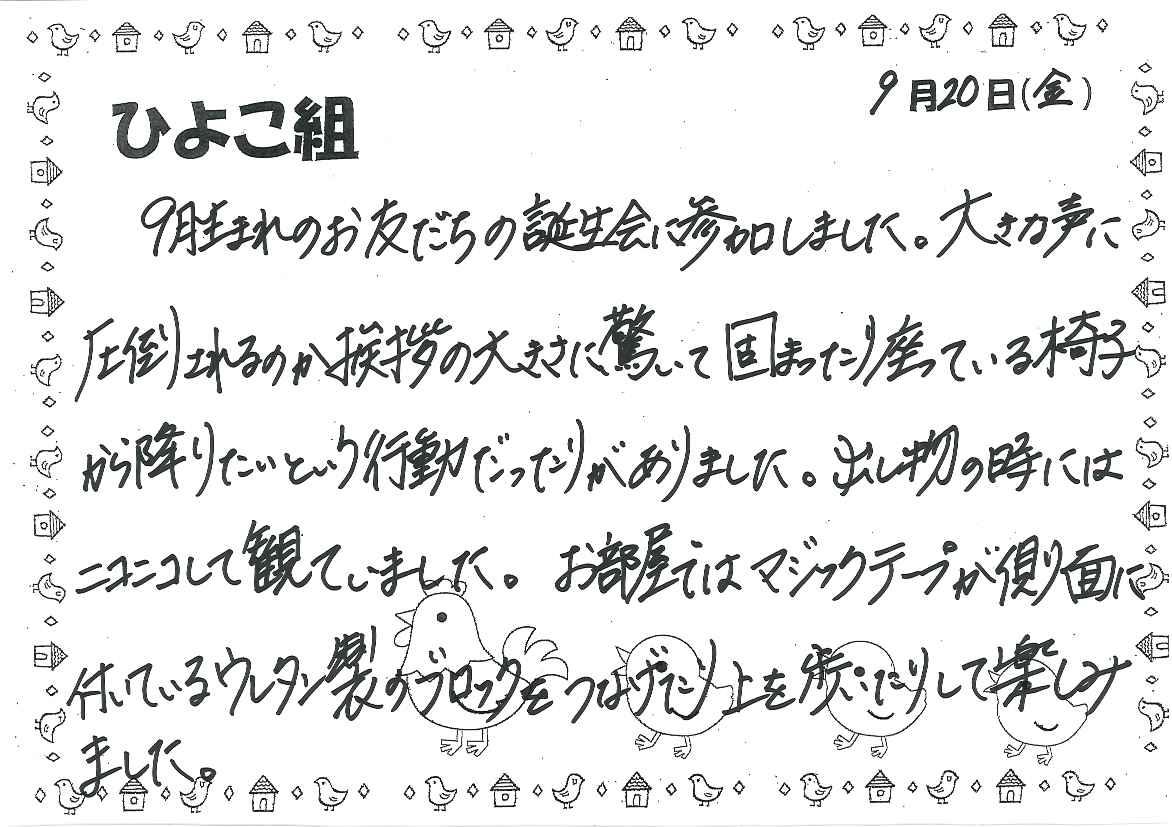 9月20日(金)
ひよこ組
9月生まれのお友だちの誕生会に参加しました。大きな声に
圧倒されるのか挨拶の大きさに驚いて固まったり座っている椅子
から降りたいという行動だったりがありました。出し物の時には
ニコニコして観ていました。お部屋ではマジックテープが側面に
付いているウレタン製のブロックをつなげたり上を歩いたりして楽しみ
ました。